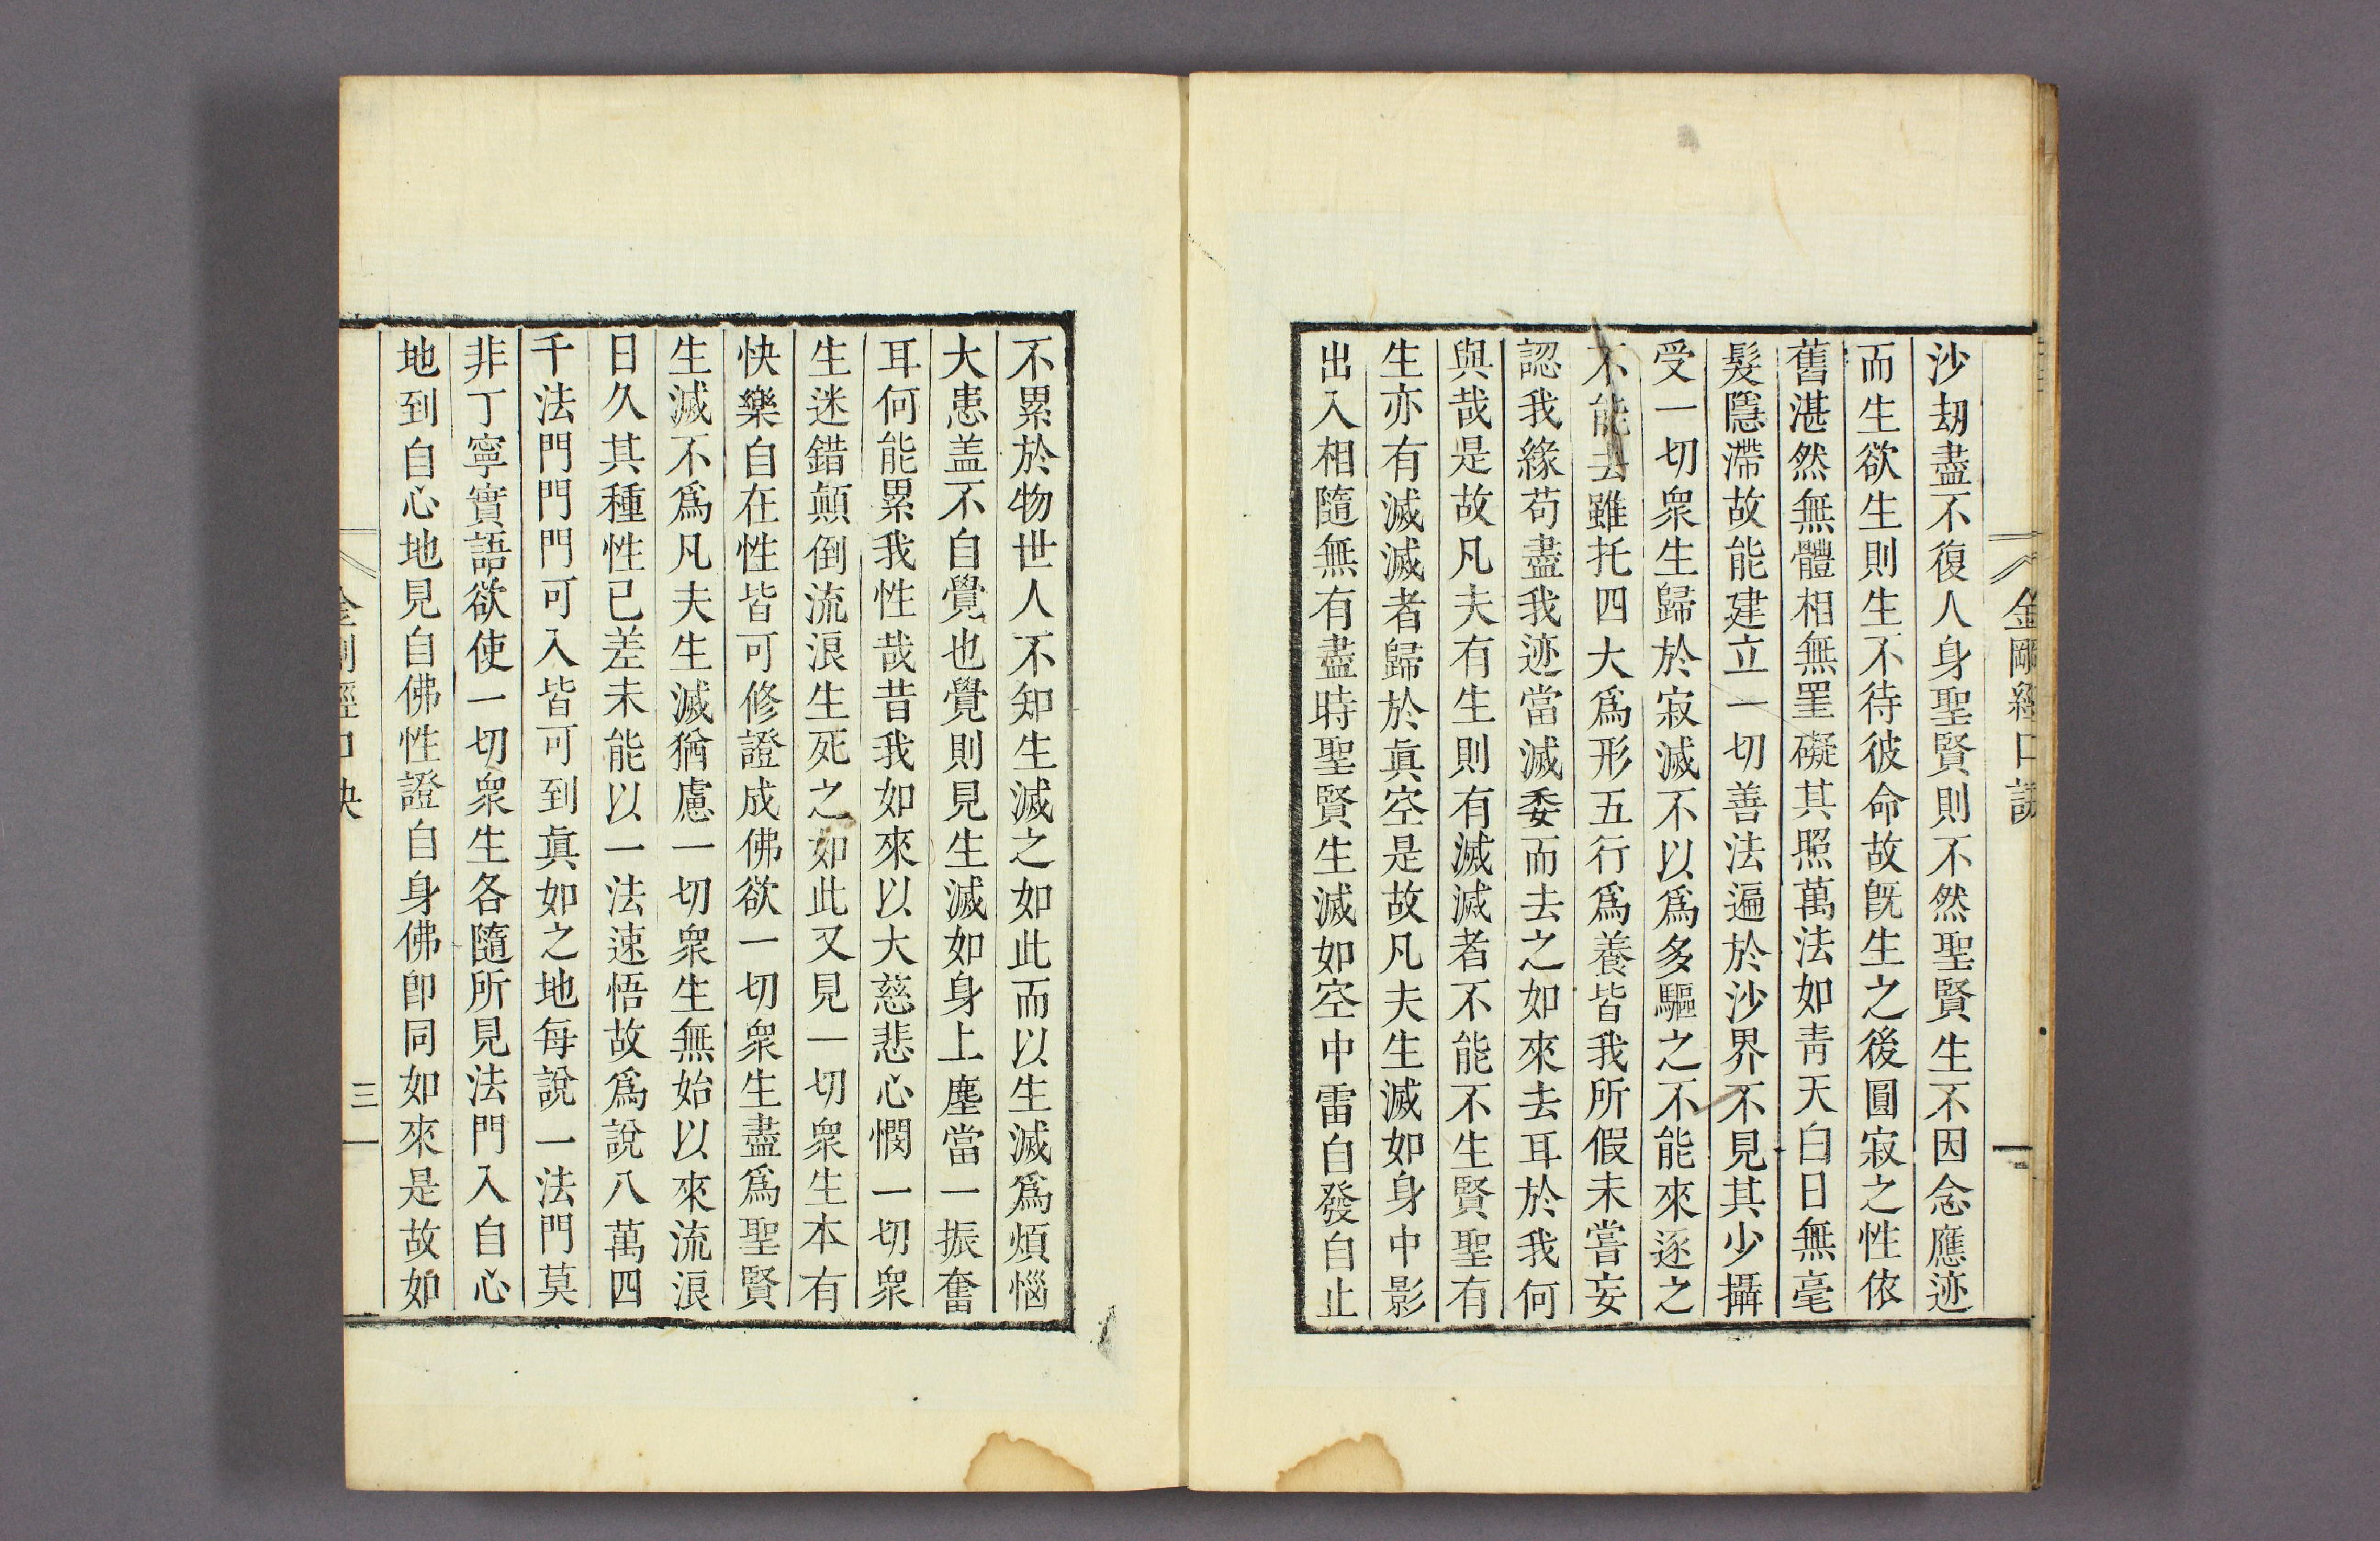 金剛經口訣
沙刼盡不復人身聖賢則不然聖賢生不因念應迹
而生欲生則生不待彼命故旣生之後圓寂之性依
舊湛然無體相無罣礙其照萬法如靑天白日無毫
髮隱滯故能建立一切善法遍於沙界不見其少攝
受一切衆生歸於寂滅不以爲多驅之不能來逐之
不能去雖托四大爲形五行爲養皆我所假未嘗妄
認我緣苟盡我迹當滅委而去之如來去耳於我何
與哉是故凡夫有生則有滅滅者不能不生賢聖有
生亦有滅滅者歸於眞空是故凡夫生滅如身中影
出入相隨無有盡時聖賢生滅如空中雷自發自止
不累於物世人不知生滅之如此而以生滅爲煩惱
大患盖不自覺也覺則見生滅如身上塵當一振奮
耳何能累我性哉昔我如來以大慈悲心憫一切衆
生迷錯顛倒流浪生死之如此又見一切衆生本有
快樂自在性皆可修證成佛欲一切衆生盡爲聖賢
生滅不爲凡夫生滅猶慮一切衆生無始以來流浪
日久其種性已差未能以一法速悟故爲說八萬四
千法門門門可入皆可到眞如之地每說一法門莫
非丁寧實語欲使一切衆生各隨所見法門入自心
地到自心地見自佛性證自身佛卽同如來是故如
金剛經口訣
三